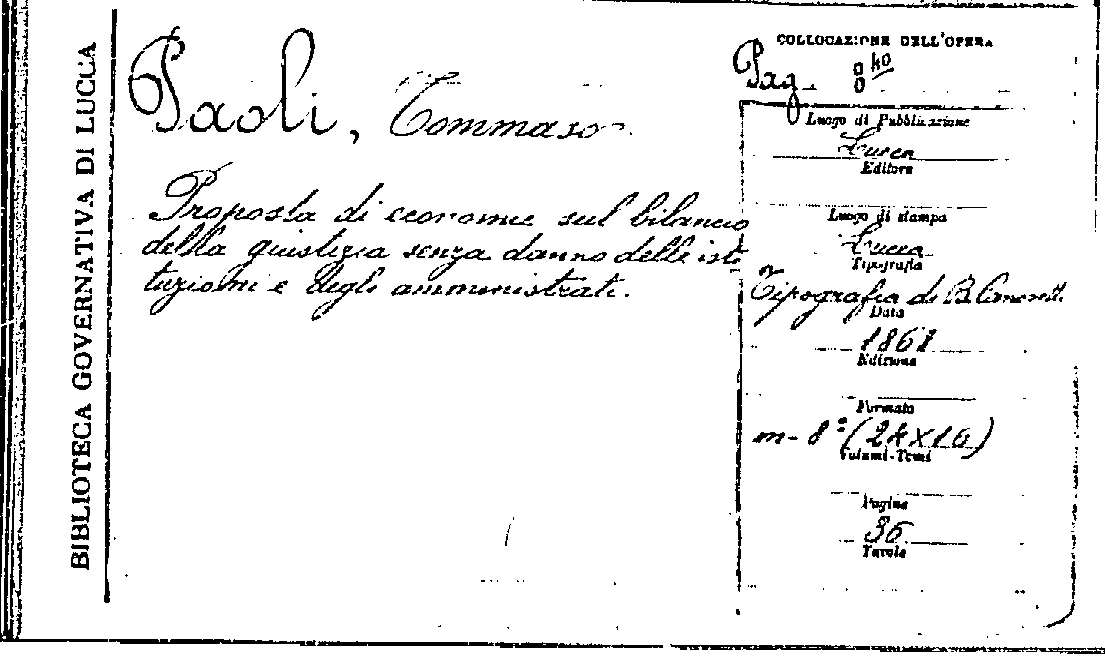 BIBLIOTECA GOVERNATIVA DI LUCCA
Paoli, Tommaso
Proposta di economie sul bilancio
della giustizia senza danno delle isti
tuzioni e degli amministrati.
COLLOCAZIONE DELL'OPERA
Pag. 8
Luogo di Pubblicazione
Lucca
Editore
Luogo di stampa
Lucca
Tipografia
Tipografia di B. Canovetti
Data
1861
Edizione
Formato
m-8º (24x16)
Volumi-Tomi
Pagine
36
Tavole